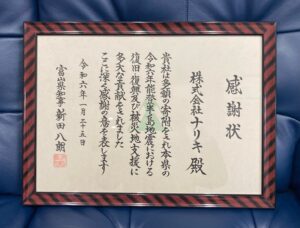 感謝状
株式会社ナリキ 殿
貴社は多額の寄附をされ本県の
令和六年能登半島地震における
復旧・復興及び被災地支援に
多大な貢献をされました
ここに深く感謝の意を表します
令和六年一月三十五日
富山県知事 新田八朗